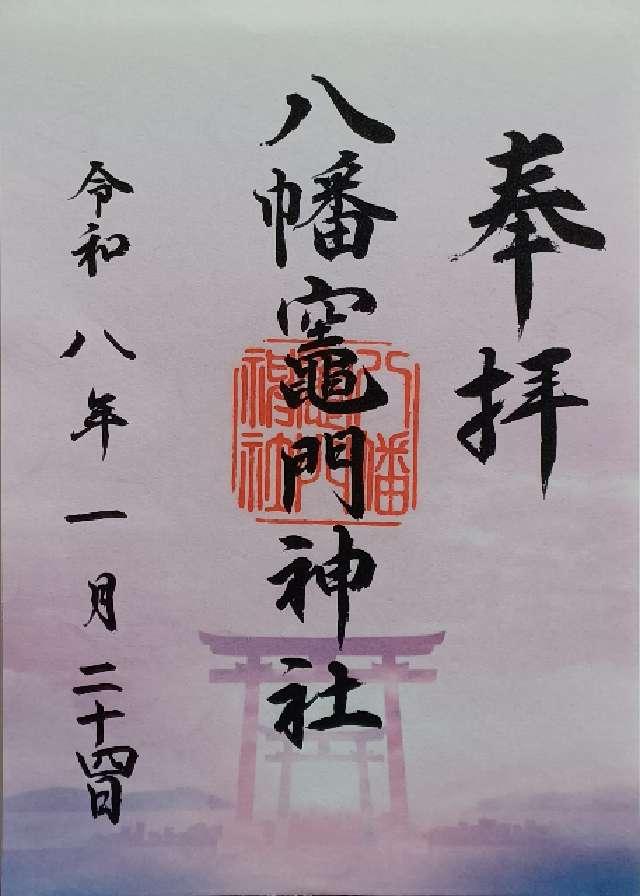 奉拝
八幡竈門神社
八幡竈門神社
令和八年一月二十四日